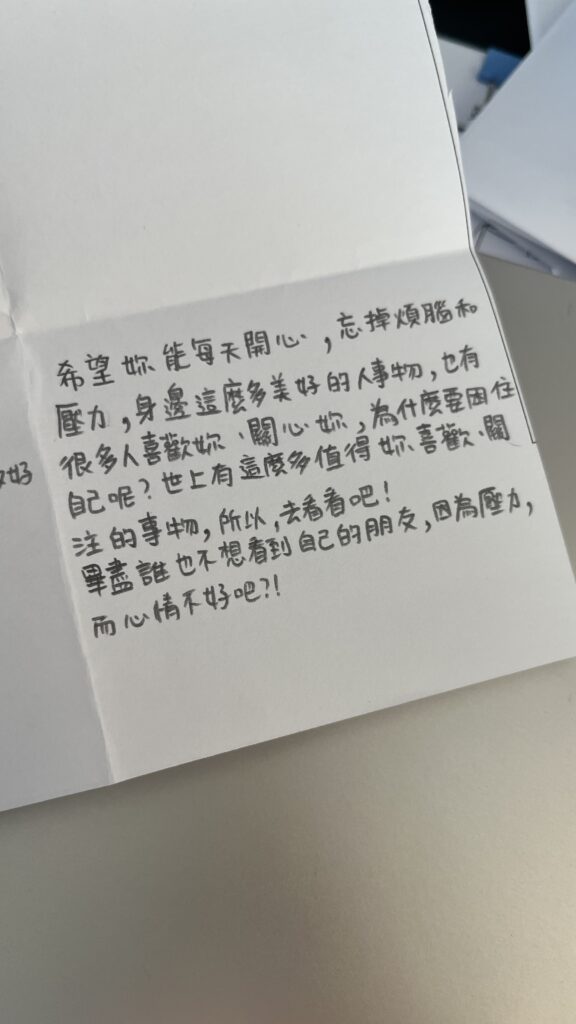 希望妳能每天開心，忘掉煩腦和
壓力，身邊這麼多美好的人事物，也有
很多人喜歡妳、關心妳，為什麼要困住
自己呢？世上有這麼多值得妳喜歡、關
注的事物，所以，去看看吧！
畢盡誰也不想看到自己的朋友，因為壓力，
而心情不好吧?!
好